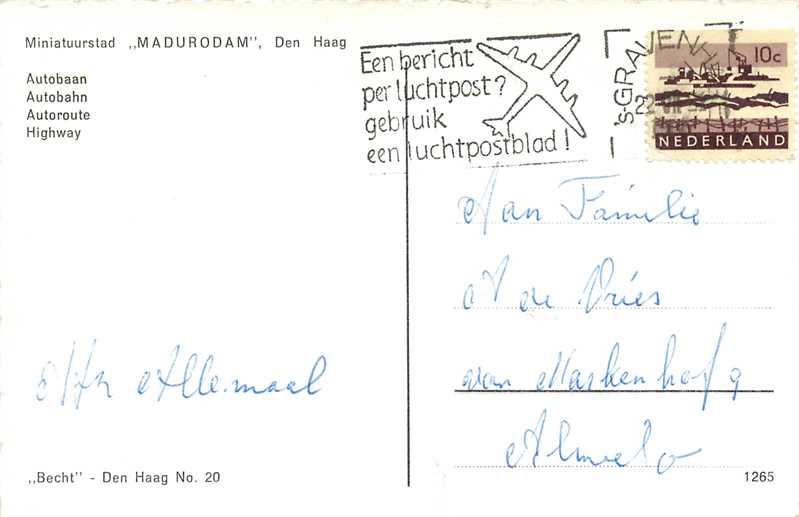 Miniatuurstad „MADURODAM”, Den Haag
Autobaan
Autobahn
Autoroute
Highway
Een bericht
per luchtpost?
gebruik
een luchtpostblad!
's-GRAVENH
22
10c
NEDERLAND
Aan Familie
de Vries
van Markenhof 9
Almelo
Allemaal
„Becht” - Den Haag No. 20
1265